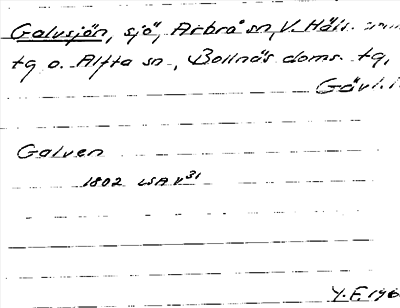 Galvsjön, sjö, Arbrå sn, V. Häls.
tg o. Alfta sn, Bollnäs doms. tg,
Gävl. l.
Galven
1802 LSA V31
Y.F. 196